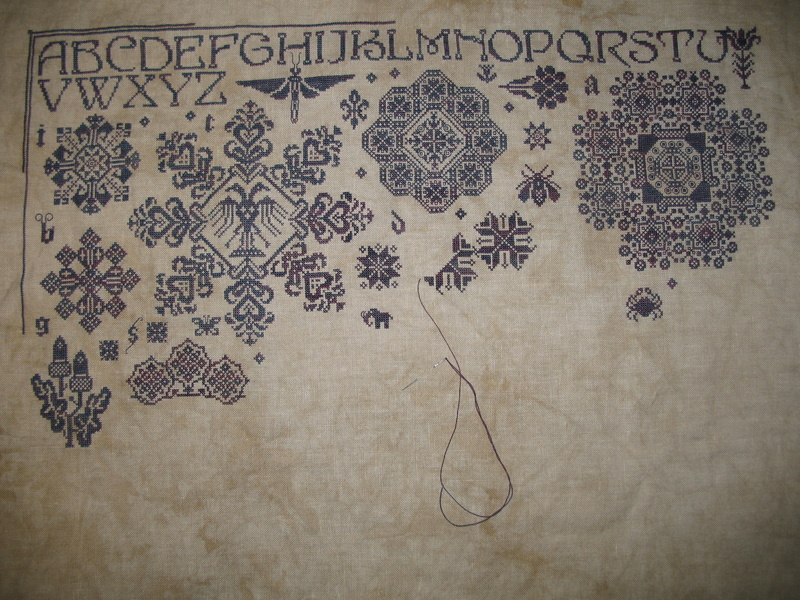 ABCDEFGHIJKLMNOPQRSTU
VWXYZ
a
i
t
b
d
g